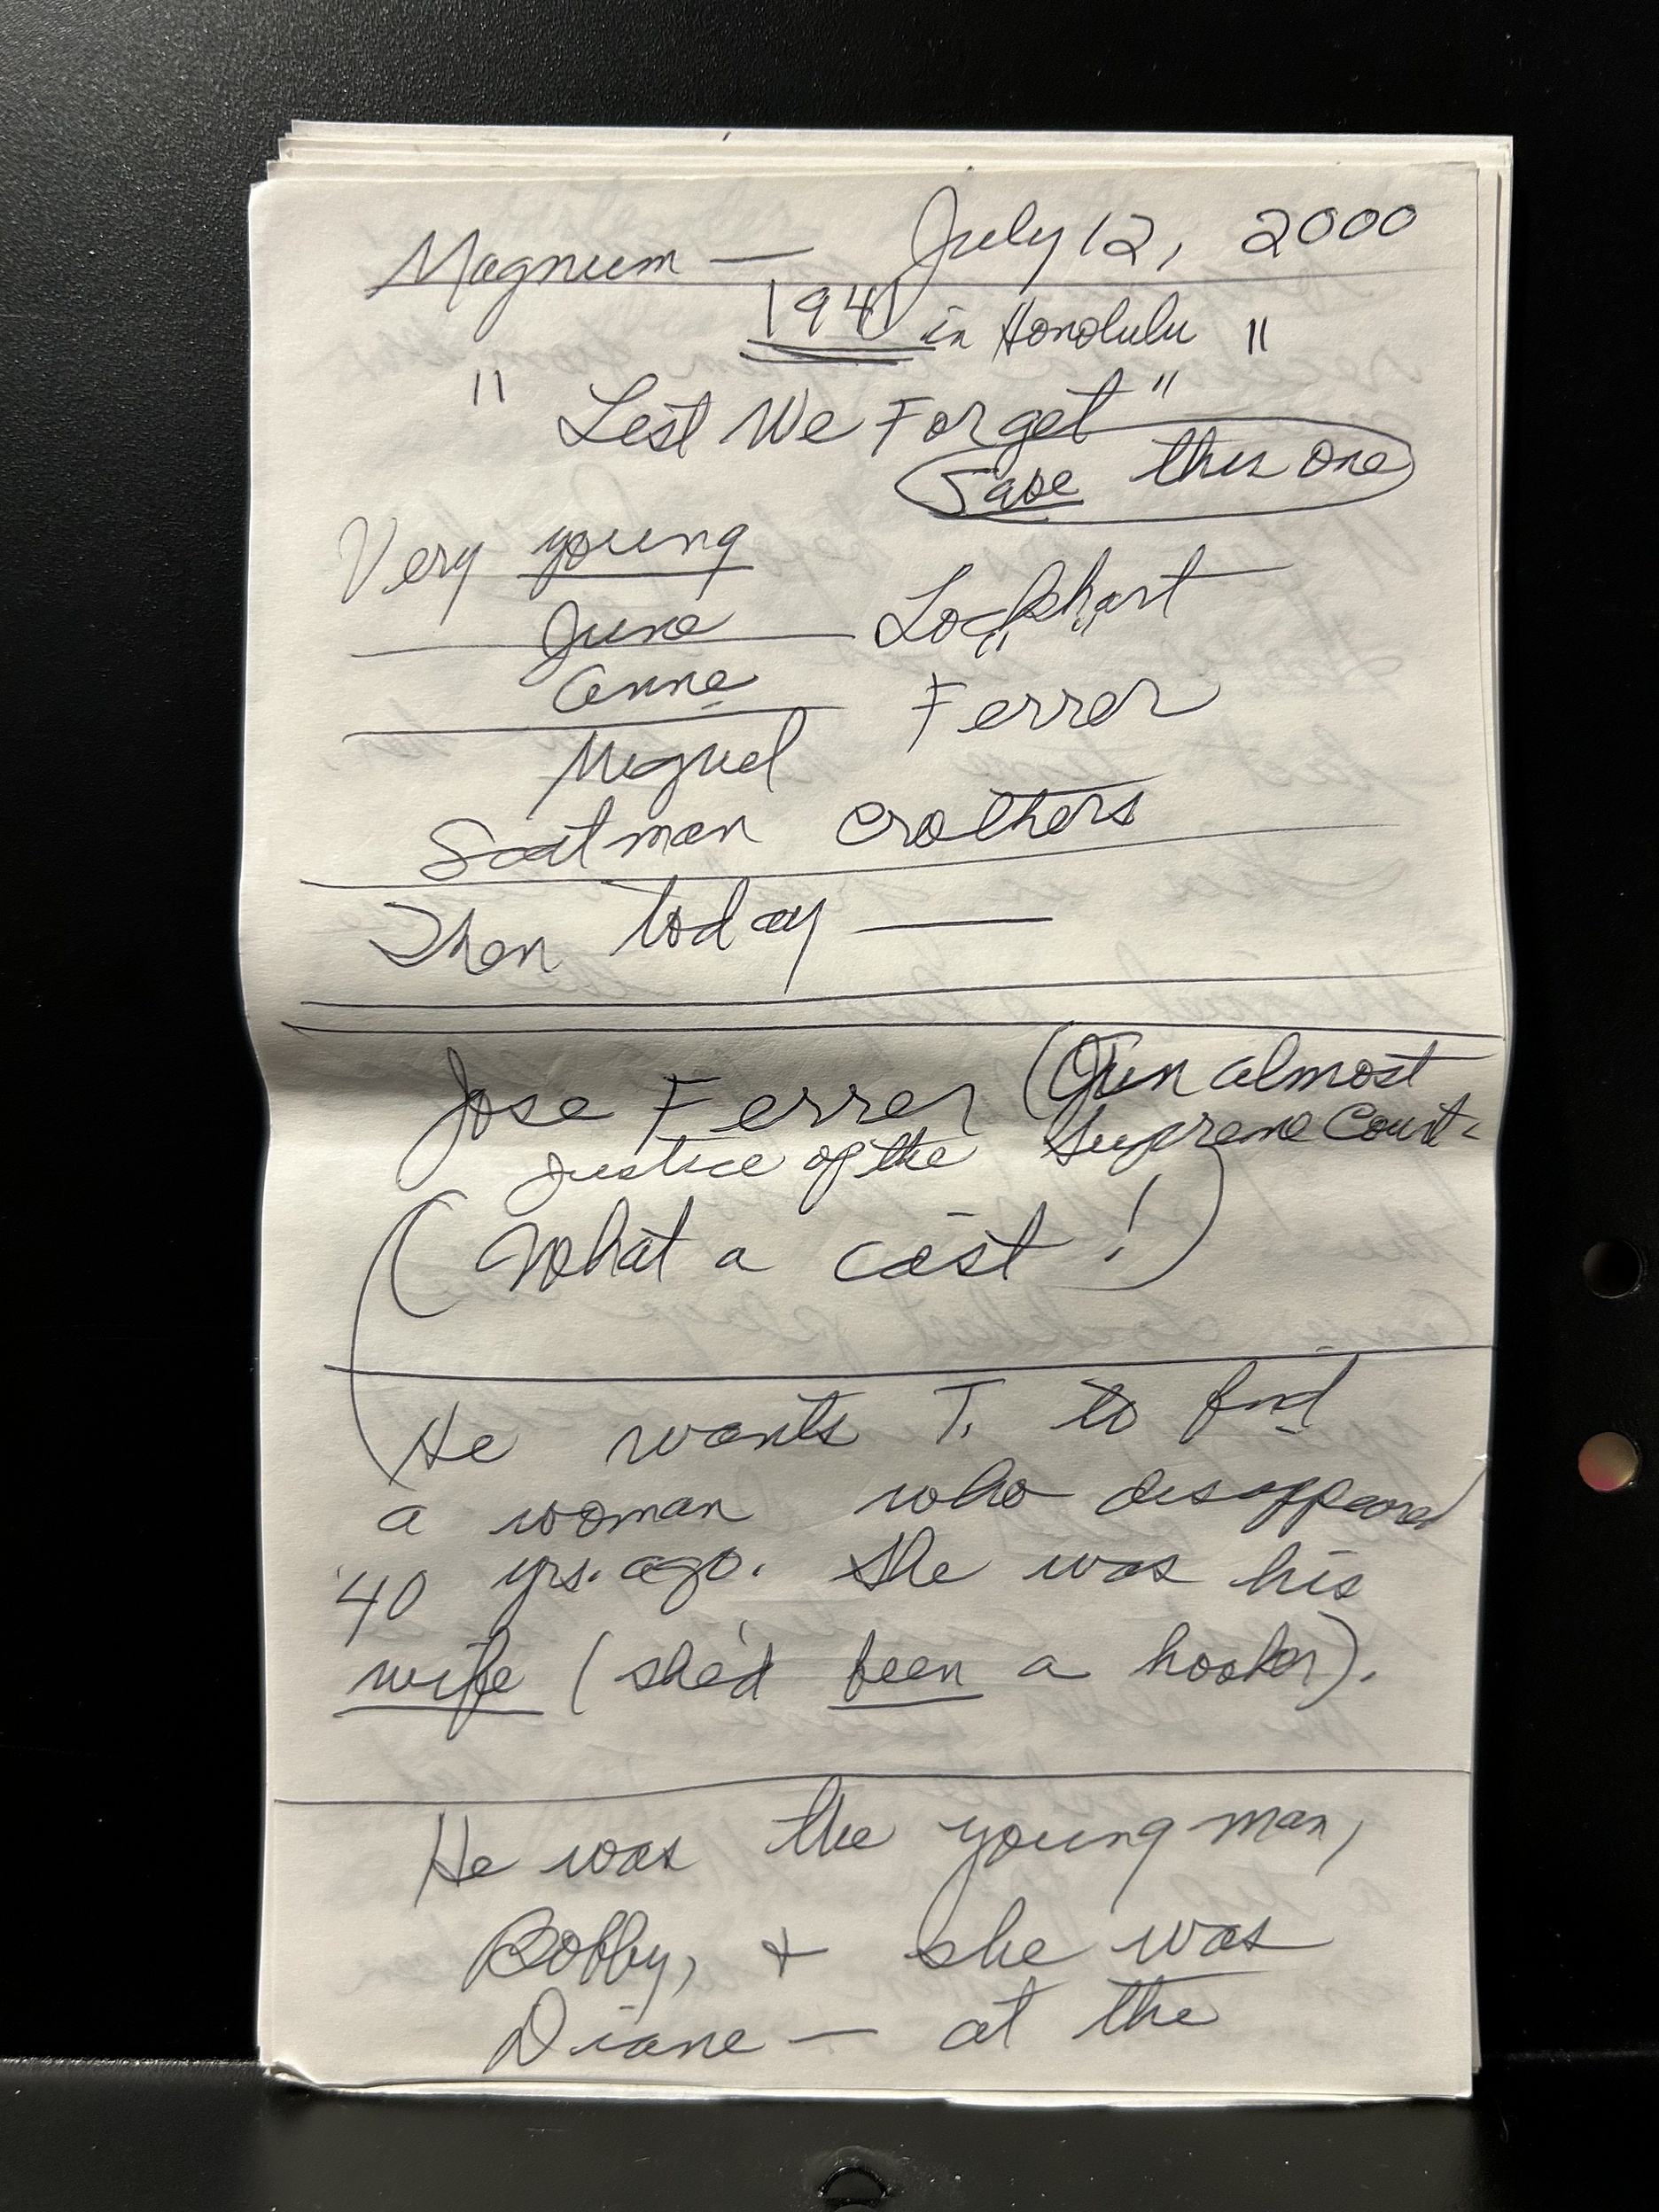 Magnum — July 12, 2000
1941 in Honolulu "
" Lest We Forget "
Save this one
Very young
June Lockhart
Anne "
Miguel Ferrer
Scatman Crothers
Then today —
Jose Ferrer (an almost
Justice of the Supreme Court.
(What a cast!)
He wants T. to find
a woman who disappeared
40 yrs. ago. She was his
wife (she'd been a hooker).
He was the young man,
Bobby, + she was
Diane — at the